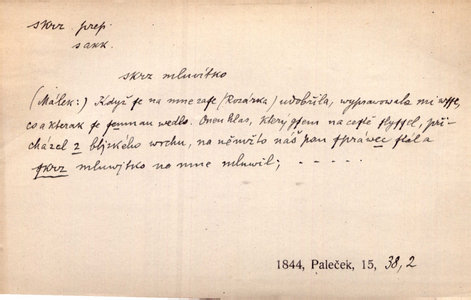 skrz prep.
s akk.
skrz mluwítko
(Málek:) Když se na mne zase (Rozárka) udobřila, wyprawowala mi wsse,
co a kterak se semnau wedlo. Onen hlas, který gsem na cestě slyssel, při-
cházel z bljzkého wrchu, na němžto náš pan spráwec stál a
skrz mluwjtko na mne mluwil; - - - - -
1844, Paleček, 15, 38, 2